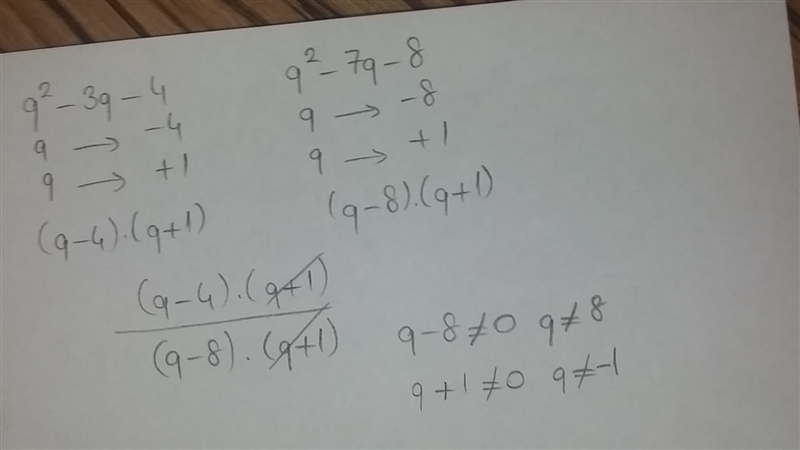 q² - 3q - 4
q → -4
q → +1
(q-4).(q+1)
q² - 7q - 8
q → -8
q → +1
(q-8).(q+1)
(q-4).(q+1)
(q-8).(q+1)
q-8≠0 q≠8
q+1≠0 q≠-1